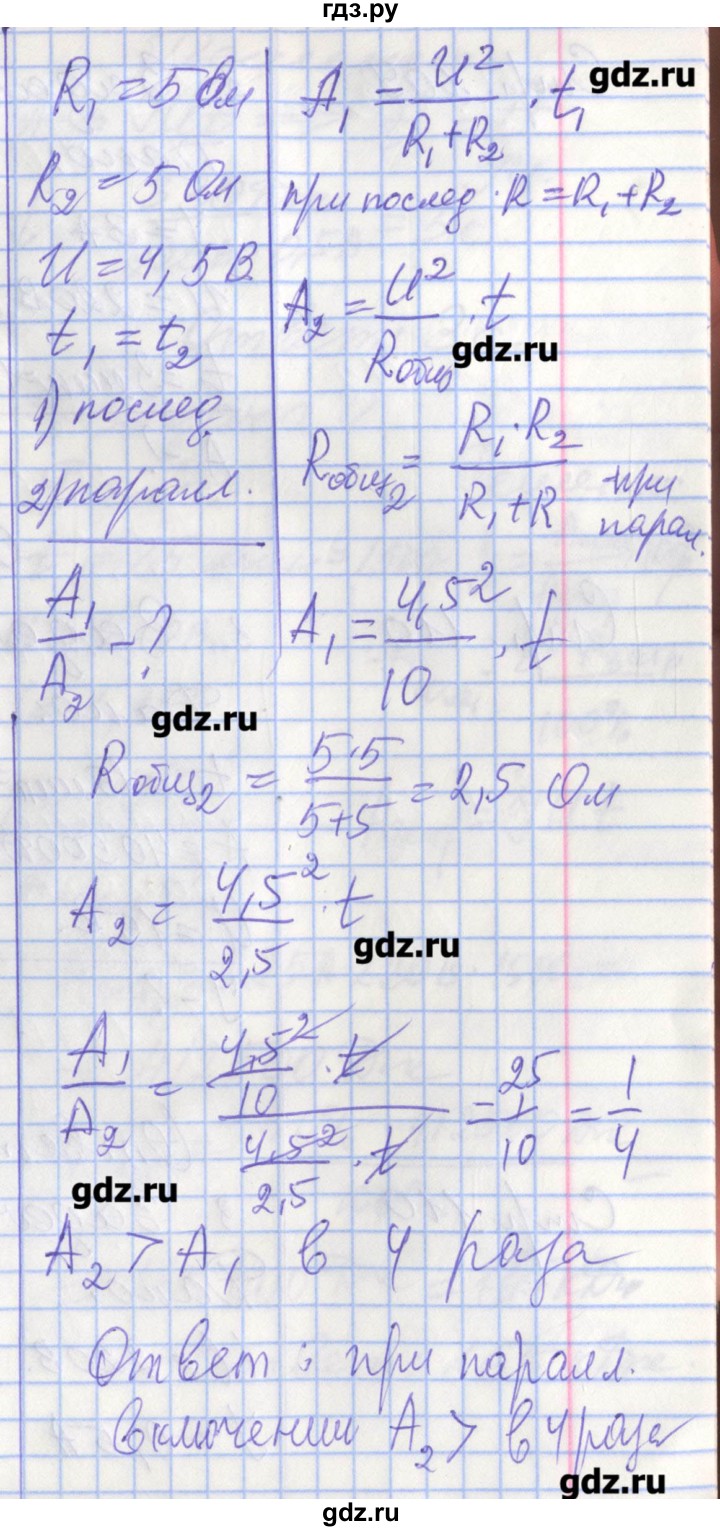 гдз.ру
R₁ = 5 Ом
R₂ = 5 Ом
U = 4,5 В
t₁ = t₂
1) послед.
2) паралл.
A₁/A₂ - ?
A₁ = U²/(R₁+R₂) · t₁
gdz.ru
при послед. R = R₁ + R₂
A₂ = U²/Rобщ · t
gdz.ru
Rобщ₂ = R₁·R₂/(R₁+R) - при парал.
A₁ = 4,5²/10 · t
gdz.ru
Rобщ₂ = 5·5/(5+5) = 2,5 Ом
A₂ = 4,5²/2,5 · t
gdz.ru
A₁/A₂ = (4,5²/10 · t)/(4,5²/2,5 · t) = 25/10 = 1/4
gdz.ru
A₂ > A₁ в 4 раза
Ответ: при паралл.
включении A₂ > в 4 раза
gdz.ru
gdz.ru